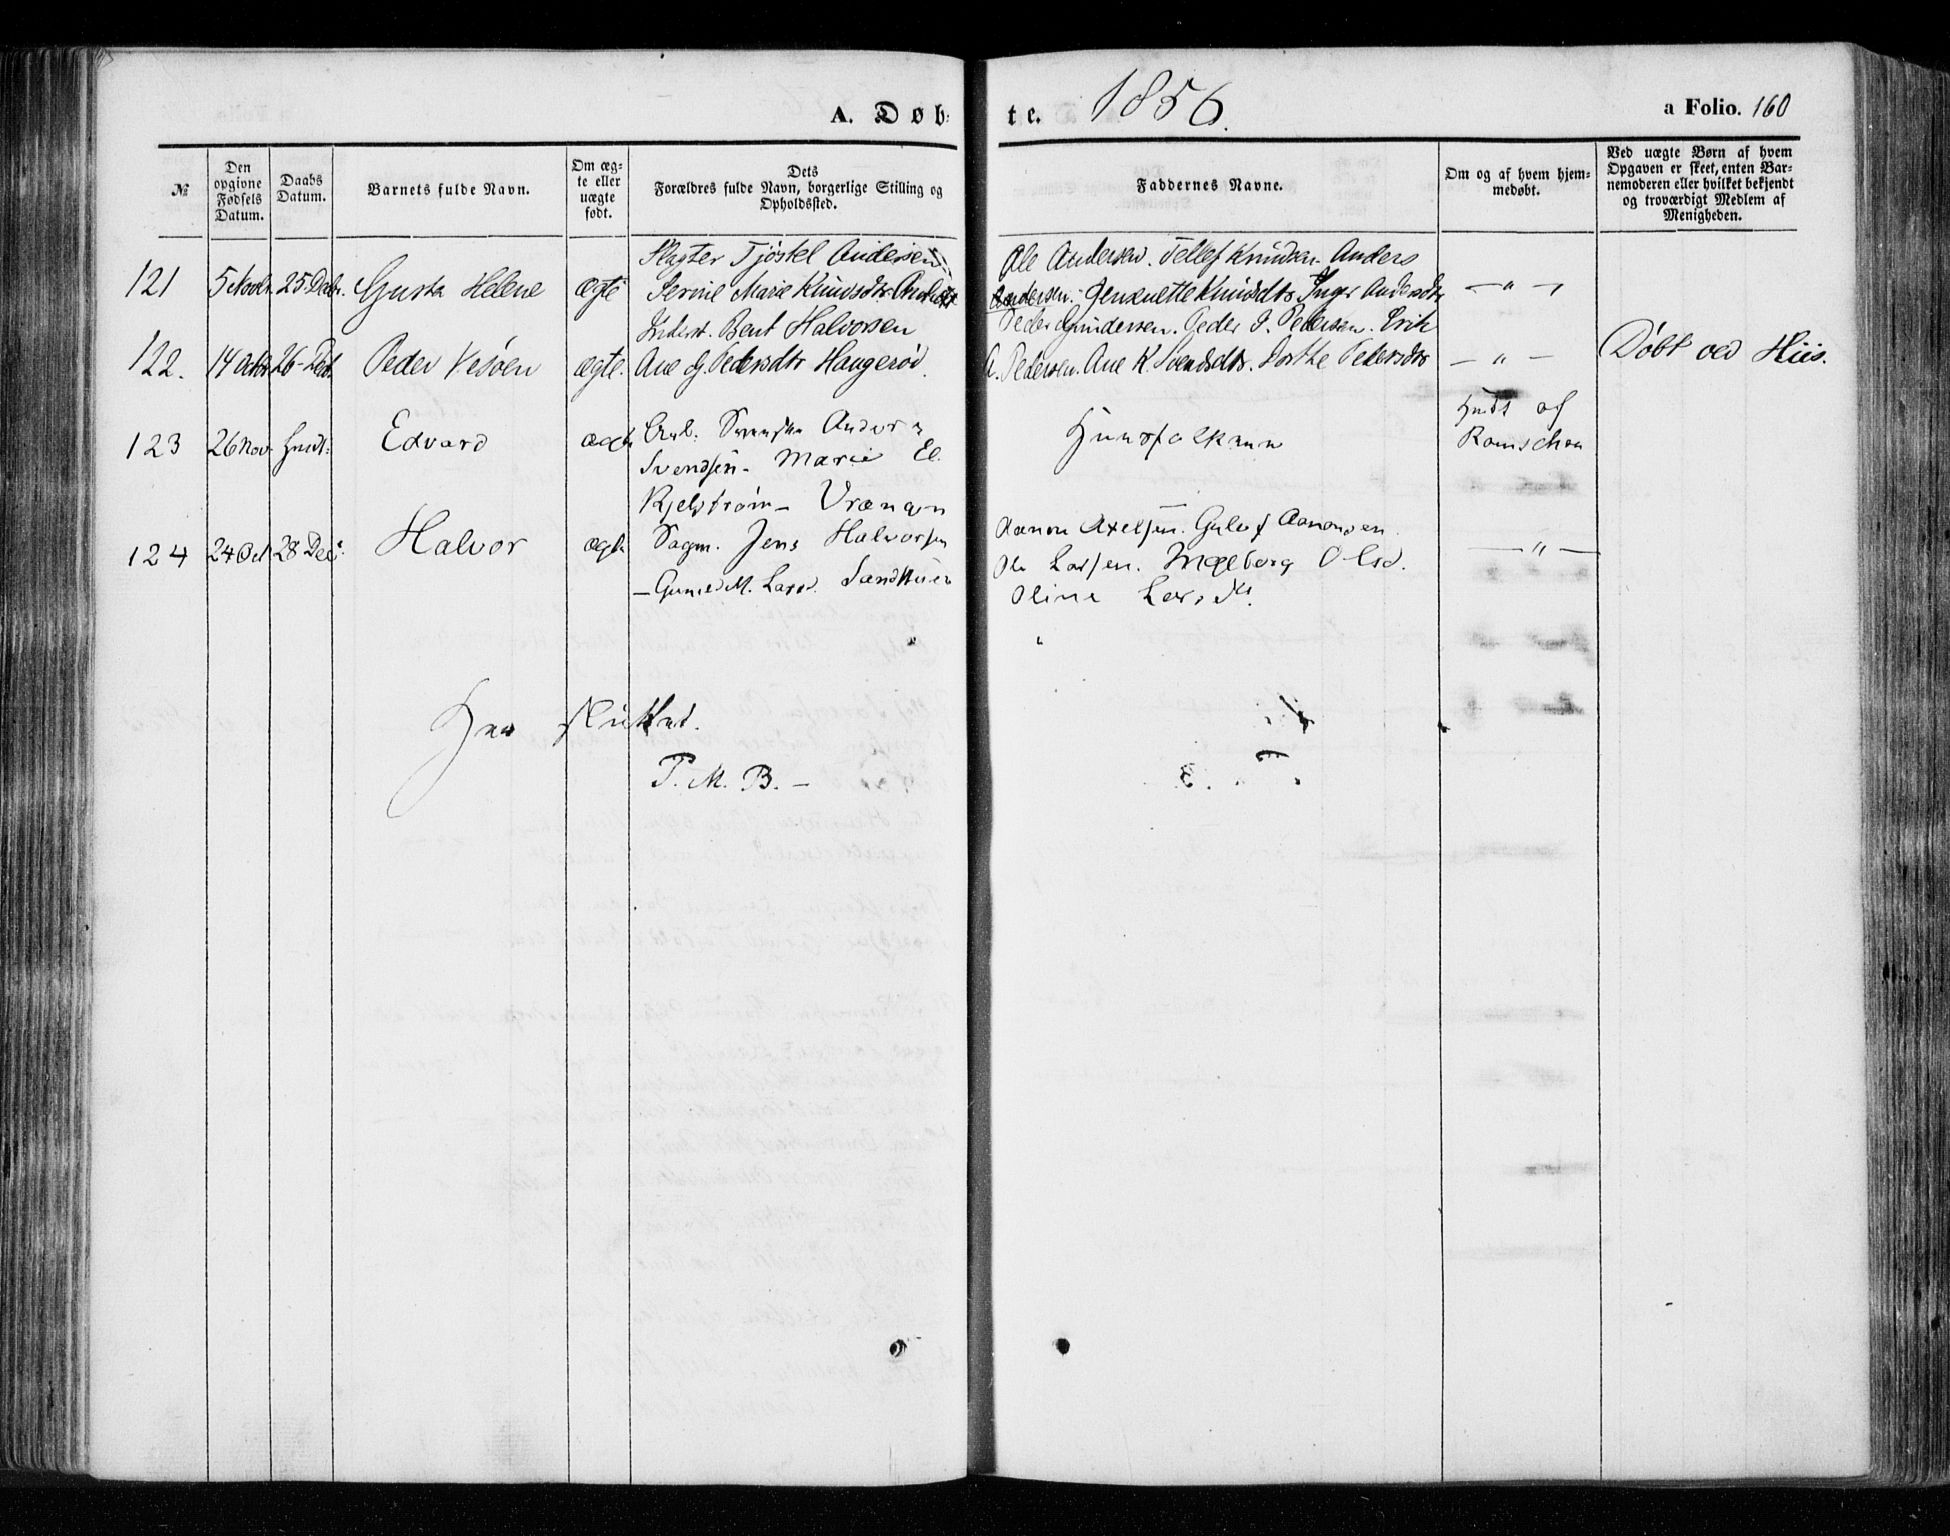 A. Døb-
te.
1856.
a Folio. 160
№
Den
opgivne
Fødsels
Datum.
Daabs
Datum.
Barnets fulde Navn.
Om æg-
te eller
uægte
født.
Dets
Forældres fulde Navn, borgerlige Stilling og
Opholdssted.
Faddernes Navne.
Om og af hvem hjem-
medøbt.
Ved uægte Børn af hvem
Opgaven er skeet, enten Bar-
nemoderen eller hvilket bekjendt
og troværdigt Medlem af
Menigheden.
121
5 Novbr.
25 Decbr.
Gusta Helene
ægte
Slagter Tjøstel Andersen
Serine Marie Knudsdtr
Ole Andersen. Tellef Knudsen. Anders
Andersen. Knudsdtr. Inger Andersdtr
— " —
122.
14 Octbr
26 Decbr.
Peder Vesøen
ægte.
Inderst. Bent Halvorsen
Ane G. Pedersdtr Haugerød.
Peder Gundersen. Peder J. Pedersen. Erik
A. Pedersen. Ane K. Svendsdtr. Dorthe Pedersdtr
— " —
Døbt ved Hiis.
123
26 Nov
Hmdt:
Edvard
ægte
Arb. Svenske Anders
Svendsen - Marie El.
Kjelstrøm - Vrængen
Huusfolkene
Hmdt af
124
24 Oct
28 Dec.
Halvor
ægte
Sagm. Jens Halvorsen
— Gunild M. Larsd. Sandkleiv
Aanon Axelsen. Guluf Aanonsen
Ole Larsen. Ingeborg Olsd.
Oline Larsdtr.
— " —
Her sluttet.
P. M. B. —